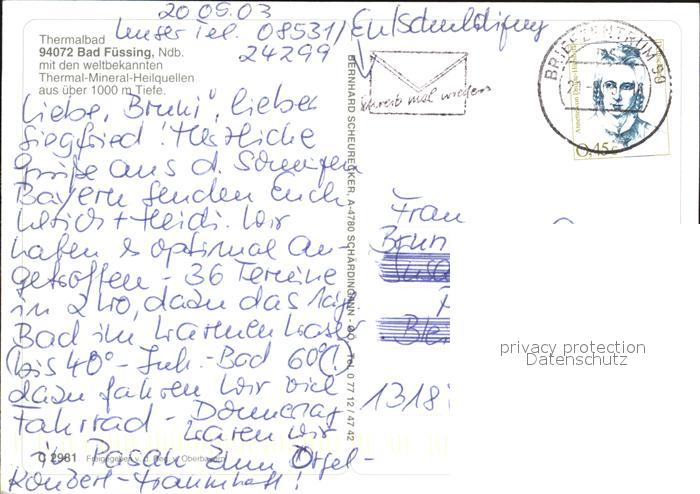 20 09.03
Unser Tel. 08531/ Entschuldigung
24299
Thermalbad
94072 Bad Füssing, Ndb.
mit den weltbekannten
Thermal-Mineral-Heilquellen
aus über 1000 m Tiefe.
Liebe "Bruni", lieber
Siegfried! Herzliche
Grüße aus d. sonnigen
Bayern senden Euch
Ulrich + Heidi. Wir
haben es optimal an-
getroffen - 36 Termine
in 2 Wo, dazu das Tägl.
Bad im warmen Wasser
(bis 40° - Inh.-Bad 60°!)
dazu fahren wir viel
Fahrrad - Donnerstag
waren wir
in Passau zum Orgel-
Konzert - traumhaft!
C 2981 Freigegeben v. d. Reg. v. Oberbayern
BERNHARD SCHEURECKER, A-4780 SCHÄRDING/INN - OÖ. Tel. 0 77 12 / 47 42
Schreib mal wieder
BRIEFZENTRUM 90
Annette von Droste-Hülshoff
0,45€
Frau
Brun
1318
privacy protection
Datenschutz